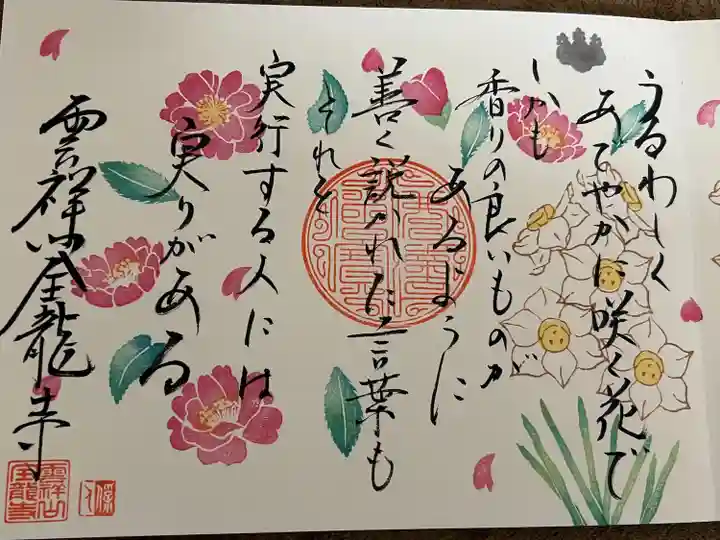 うるわしく
あでやかに咲く花で
しかも
香りの良いものが
あるように
善く説かれた言葉も
それを
実行する人には
実りがある
雲祥山金龍寺
雲祥山
金龍寺